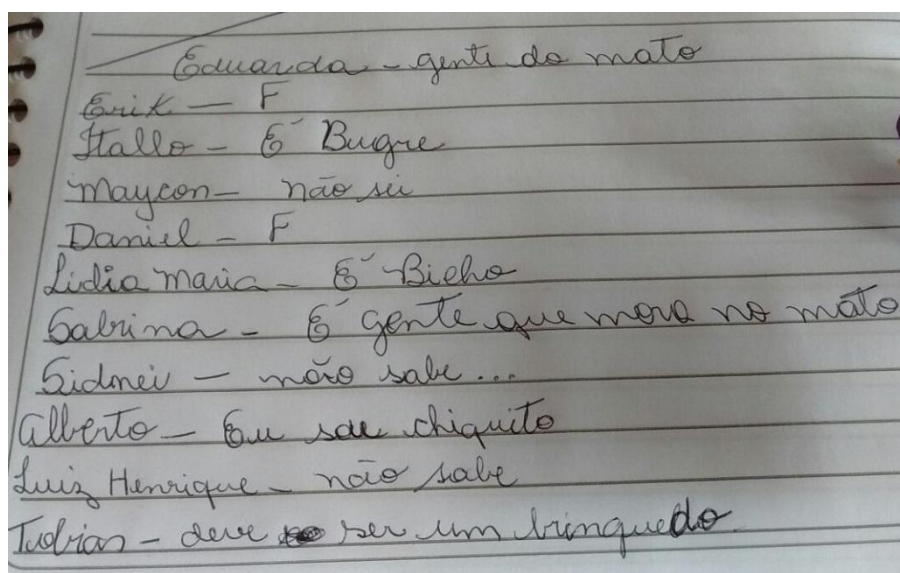 Eduarda - gente do mato
Erik — F
Itallo - É Bugre
Maycon - não sei
Daniel - F
Lidia Maria - É Bicho
Sabrina - É gente que mora no mato
Sidnei — não sabe...
Alberto - Eu sou chiquito
Luiz Henrique - não sabe
deve ser um brinquedo